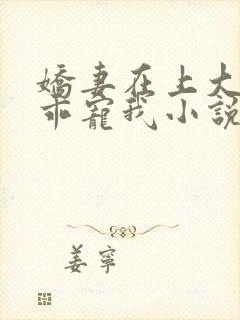 嬌妻在上大
乖寵我小說
姜寧